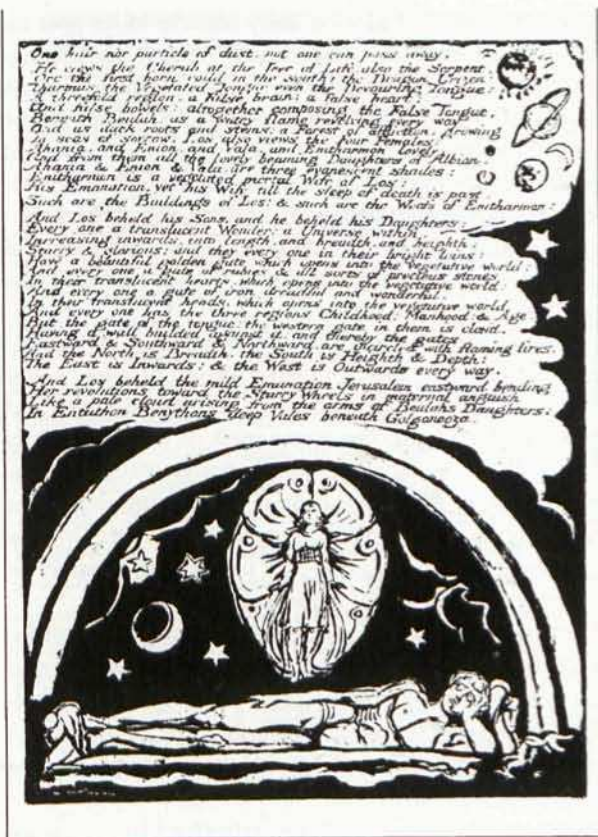 One hair nor particle of dust, not one can pass away.
He views the Cherub at the Tree of Life, also the Serpent,
Orc the first born coild in the south: the Dragon Urizen:
Tharmas the Vegetated Tongue even the Devouring Tongue:
A threefold region, a false brain: a false heart:
And false bowels: altogether composing the False Tongue,
Beneath Beulah: as a watry flame revolving every way
And as dark roots and stems: a Forest of affliction, growing
In seas of sorrow. Los also views the Four Females:
Ahania, and Enion, and Vala, and Enitharmon lovely.
And from them all the lovely beaming Daughters of Albion,
Ahania & Enion & Vala, are three evanescent shades:
Enitharmon is a vegetated mortal Wife of Los:
His Emanation, yet his Wife till the sleep of death is past.
Such are the Buildings of Los: & such are the Woofs of Enitharmon:
And Los beheld his Sons, and he beheld his Daughters:
Every one a translucent Wonder: a Universe within,
Increasing inwards, into length and breadth, and heighth:
Starry & glorious: and they every one in their bright loins:
Have a beautiful golden gate which opens into the vegetative world:
And every one a gate of rubies & all sorts of precious stones
In their translucent hearts, which opens into the vegetative world:
And every one a gate of iron dreadful and wonderful,
In their translucent heads, which opens into the vegetative world
And every one has the three regions Childhood: Manhood: & Age:
But the gate of the tongue: the western gate in them is clos'd,
Having a wall builded against it: and thereby the gates
Eastward & Southward & Northward, are incircled with flaming fires.
And the North is Breadth, the South is Heighth & Depth:
The East is Inwards: & the West is Outwards every way.
And Los beheld the mild Emanation Jerusalem eastward bending
Her revolutions toward the Starry Wheels in maternal anguish
Like a pale cloud arising from the arms of Beulahs Daughters:
In Entuthon Benythons deep Vales beneath Golgonooza.